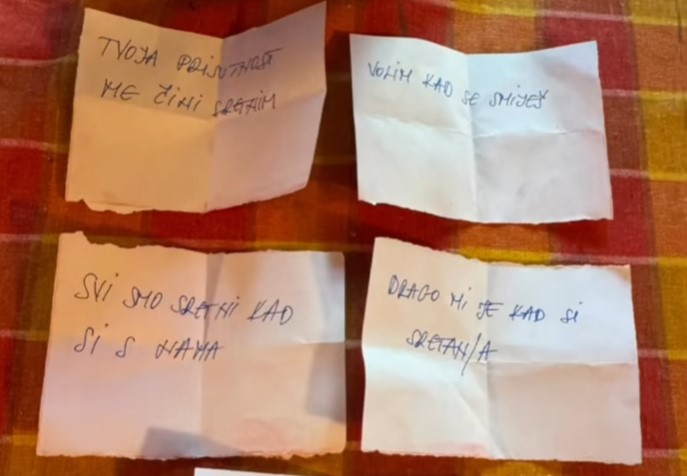 TVOJA PRISUTNOST
ME ČINI SRETNIM
VOLIM KAD SE SMIJEŠ
SVI SMO SRETNI KAD
SI S NAMA
DRAGO MI JE KAD SI
SRETAN/A